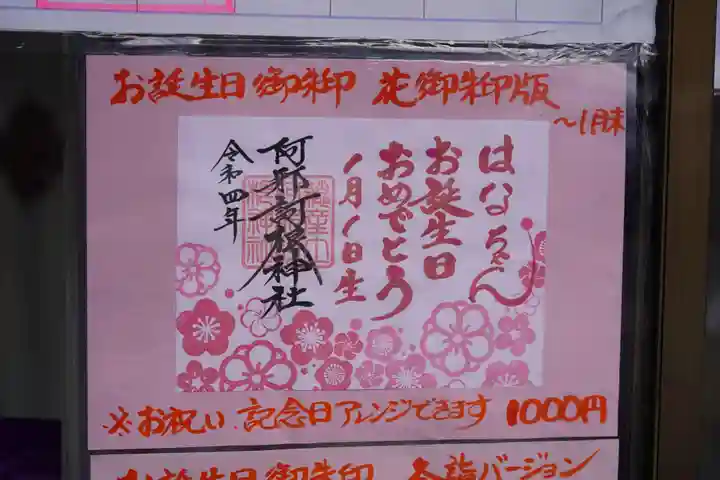 お誕生日御朱印 花御朱印版
～1月末
はなちゃん
お誕生日
おめでとう
1月1日生
阿邪訶根神社
令和四年
※お祝い、記念日アレンジできます 1000円
お誕生日御朱印 参詣バージョン